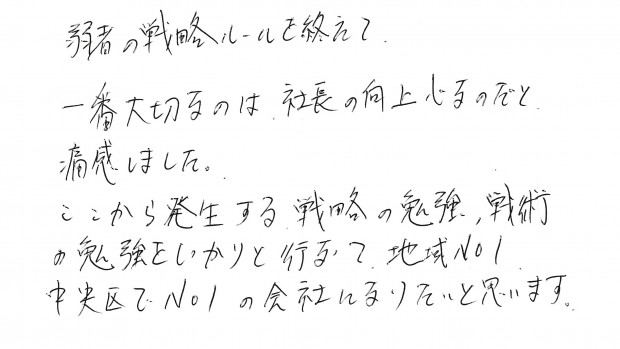 弱者の戦略ルールを終えて
一番大切なのは、社長の向上心なのだと
痛感しました。
ここから発生する、戦略の勉強、戦術
の勉強をしっかりと行なって、地域No1
中央区でNo1の会社になりたいと思います。